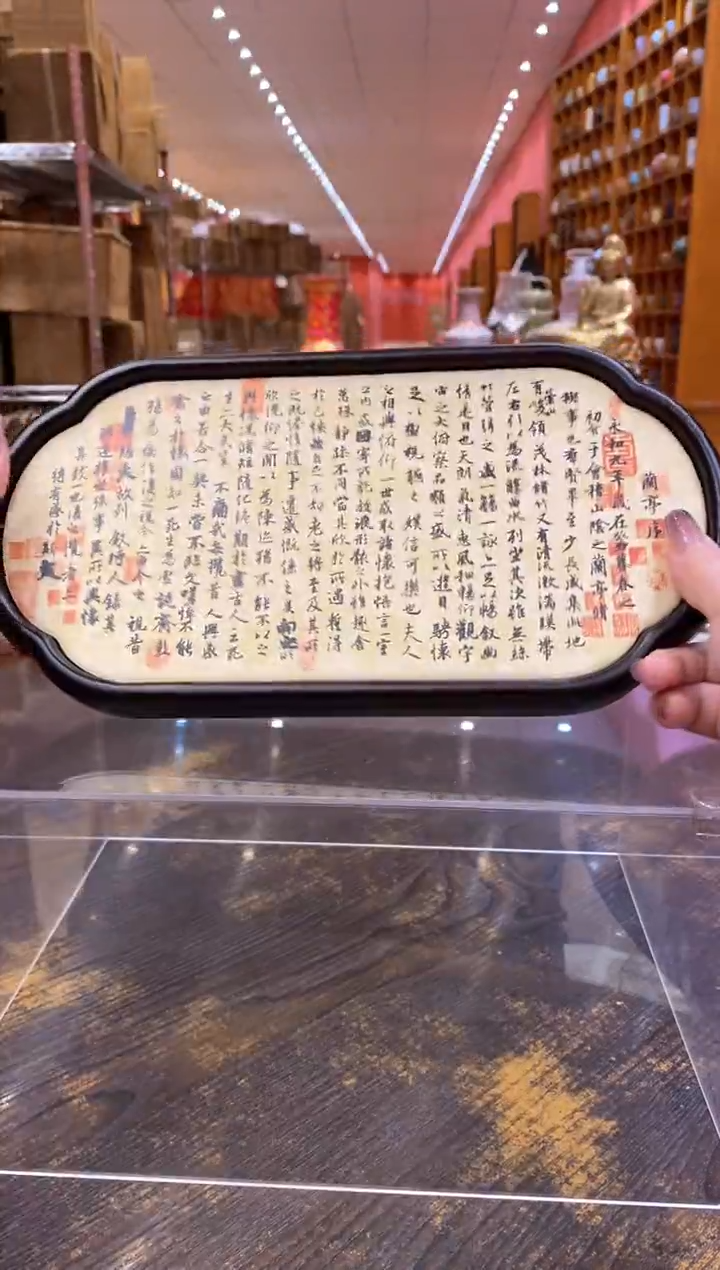 蘭亭序
永和九年歲在癸丑暮春之
初會于會稽山陰之蘭亭脩
稧事也羣賢畢至少長咸集此地
有崇山峻領茂林脩竹又有清流激湍暎帶
左右引以為流觴曲水列坐其次雖無絲
竹管弦之盛一觴一詠亦足以暢叙幽
情是日也天朗氣清惠風和暢仰觀宇
宙之大俯察品類之盛所以遊目騁懷
足以極視聽之娛信可樂也夫人
之相與俯仰一世或取諸懷抱悟言一室
之內或因寄所託放浪形骸之外雖趣舍
萬殊靜躁不同當其欣於所遇暫得
於己快然自足不知老之將至及其所
之既惓情隨事遷感慨係之矣向之所
欣俛仰之間以為陳迹猶不能不以之
興懷況脩短隨化終期於盡古人云死
生亦大矣豈不痛哉每攬昔人興感
之由若合一契未嘗不臨文嗟悼不能
喻之於懷固知一死生為虛誕齊彭
殤為妄作後之視今亦由今之視昔
悲夫故列叙時人録其
所述雖世殊事異所以興懷
其致一也後之攬者亦
將有感於斯文